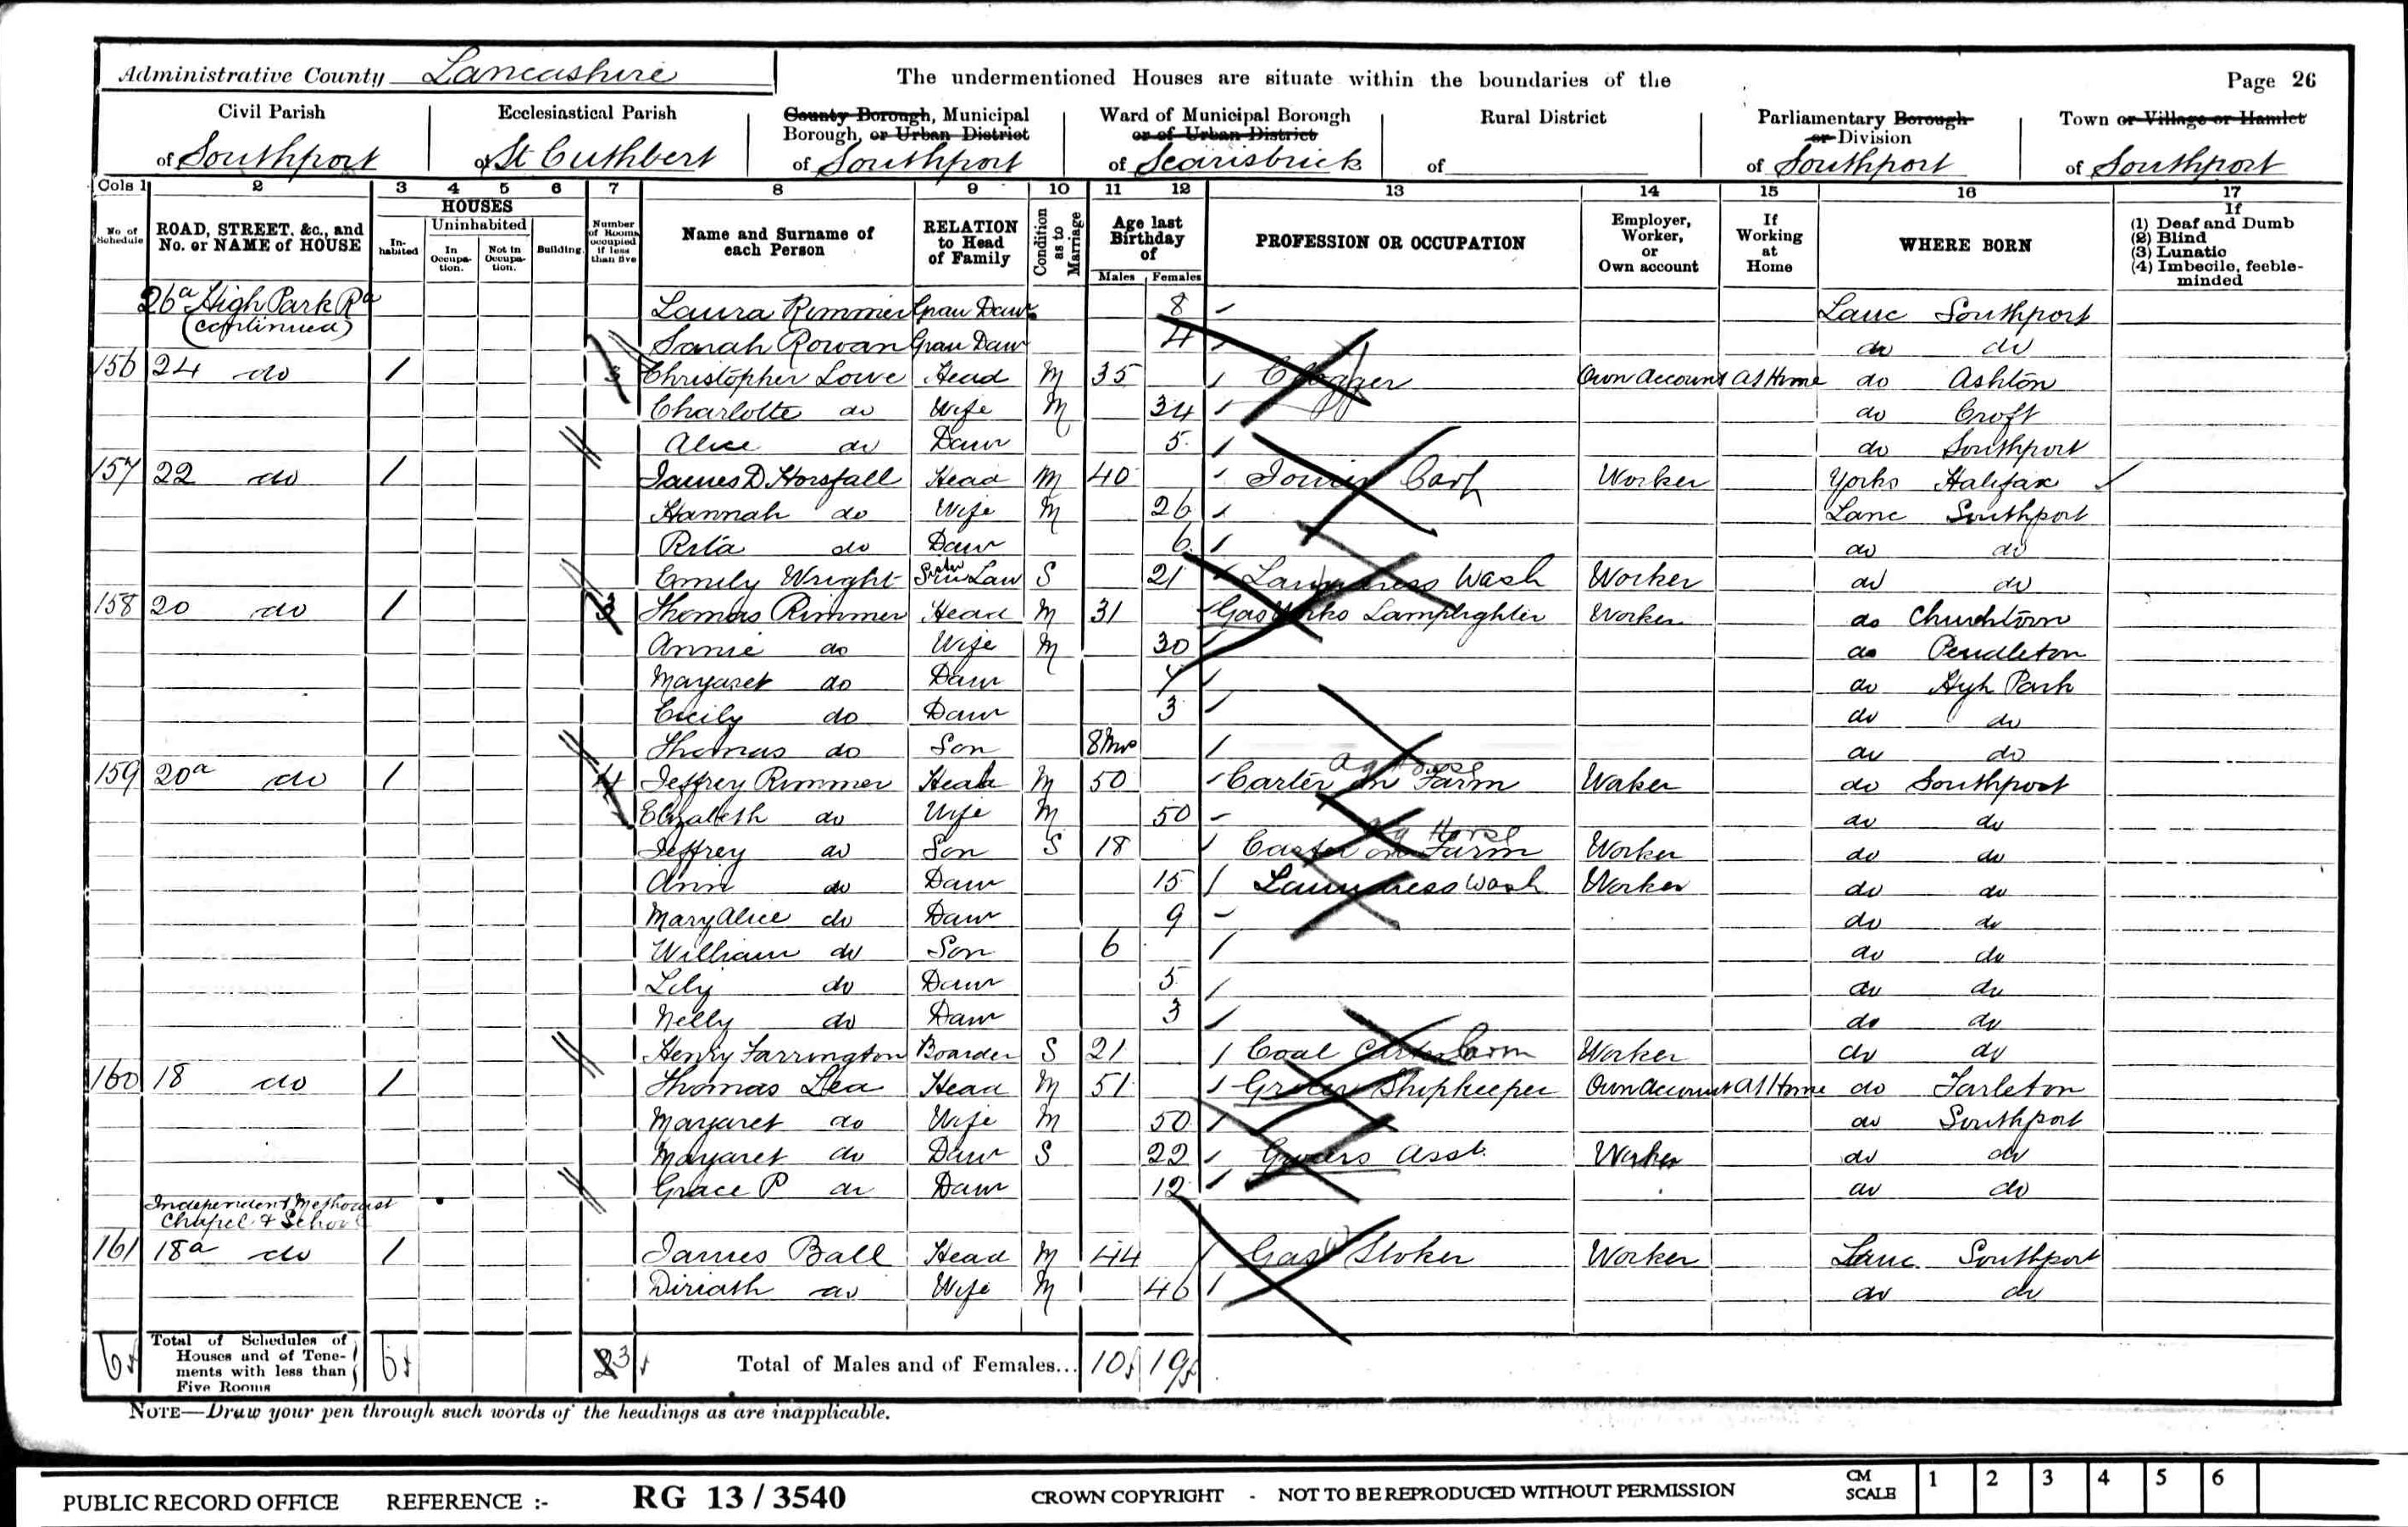 Administrative County Lancashire The undermentioned Houses are situate within the boundaries of the Page 26
Civil Parish of Southport
Ecclesiastical Parish of St Cuthbert
County Borough, Municipal Borough, or Urban District of Southport
Ward of Municipal Borough or of Urban District of Scarisbrick
Rural District of
Parliamentary Borough or Division of Southport
Town or Village or Hamlet of Southport
Cols 1 2 3 4 5 6 7 8 9 10 11 12 13 14 15 16 17
No. of Schedule
ROAD, STREET, &c., and No. or NAME of HOUSE
HOUSES
Inhabited
Uninhabited
In Occupation.
Not in Occupation.
Building.
Number of Rooms occupied if less than five
Name and Surname of each Person
RELATION to Head of Family
Condition as to Marriage
Age last Birthday of
Males Females
PROFESSION OR OCCUPATION
Employer, Worker, or Own account
If Working at Home
WHERE BORN
If
(1) Deaf and Dumb
(2) Blind
(3) Lunatic
(4) Imbecile, feeble-minded
26a High Park Rd Laura Rimmer Gran Daur 8 Lanc Southport
(continued) Sarah Rowan Gran Daur 4 do do
156 24 do 1 3 Christopher Lowe Head M 35 Clogger Own Account At Home do Ashton
Charlotte do Wife M 34 do Croft
Alice do Daur 5 do Southport
157 22 do 1 James D Horsfall Head M 40 Joiner Carp Worker Yorks Halifax
Hannah do Wife M 26 Lanc Southport
Rita do Daur 6 do do
Emily Wright Sister in Law S 21 Laundress Wash Worker do do
158 20 do 1 3 Thomas Rimmer Head M 31 Gas Works Lamplighter Worker do Churchtown
Annie do Wife M 30 do Pendleton
Margaret do Daur do High Park
Cicily do Daur 3 do do
Thomas do Son 8 Mos do do
159 20a do 1 4 Jeffrey Rimmer Head M 50 Carter on Farm Worker do Southport
Elizabeth do Wife M 50 do do
Jeffrey do Son S 18 Carter on Farm Ag Horse Worker do do
Ann do Daur 15 Laundress Wash Worker do do
Mary Alice do Daur 9 do do
William do Son 6 do do
Lily do Daur 5 do do
Nelly do Daur 3 do do
Henry Farrington Boarder S 21 Coal Carter Worker do do
160 18 do 1 Thomas Lea Head M 51 Grocer Shopkeeper Own Account At Home do Tarleton
Margaret do Wife M 50 do Southport
Margaret do Daur S 22 Grocers Asst. Worker do do
Grace P do Daur 12 do do
Independent Methodist
Chapel & School
161 18a do 1 James Ball Head M 44 Gas Stoker Worker Lanc Southport
Diriath do Wife M 46 do do
6 Total of Schedules of Houses and of Tenements with less than Five Rooms 6 3 Total of Males and of Females... 10 19
NOTE—Draw your pen through such words of the headings as are inapplicable.
PUBLIC RECORD OFFICE REFERENCE :- RG 13 / 3540 CROWN COPYRIGHT - NOT TO BE REPRODUCED WITHOUT PERMISSION CM SCALE 1 2 3 4 5 6